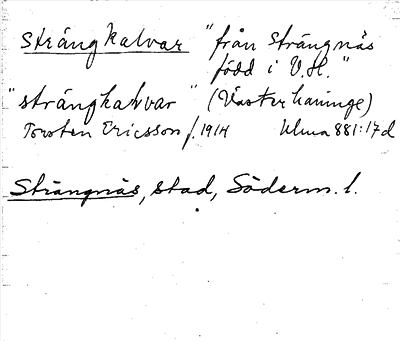 strängkalvar "från Strängnäs
född i V.H."
"strängkalvar" (Västerhaninge)
Torsten Ericsson f. 1914 Ulma 881:17d
Strängnäs, stad, Söderm. l.